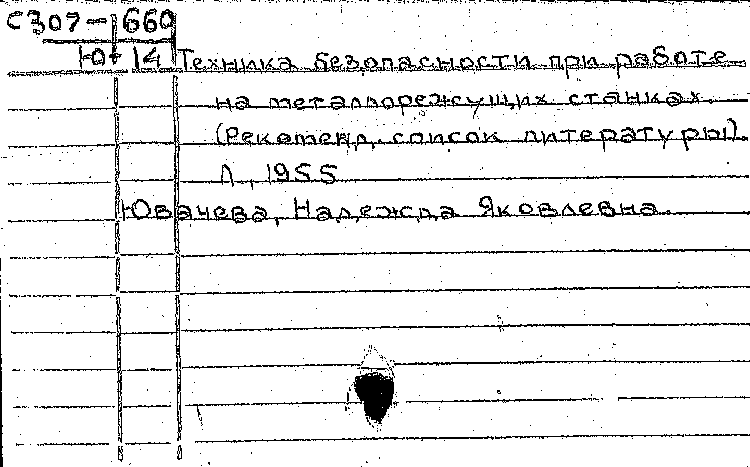 С307-1660
Ю-14 Техника безопасности при работе
на металлорежущих станках.
(Рекоменд. список литературы).
Л., 1955
Ювачева, Надежда Яковлевна.